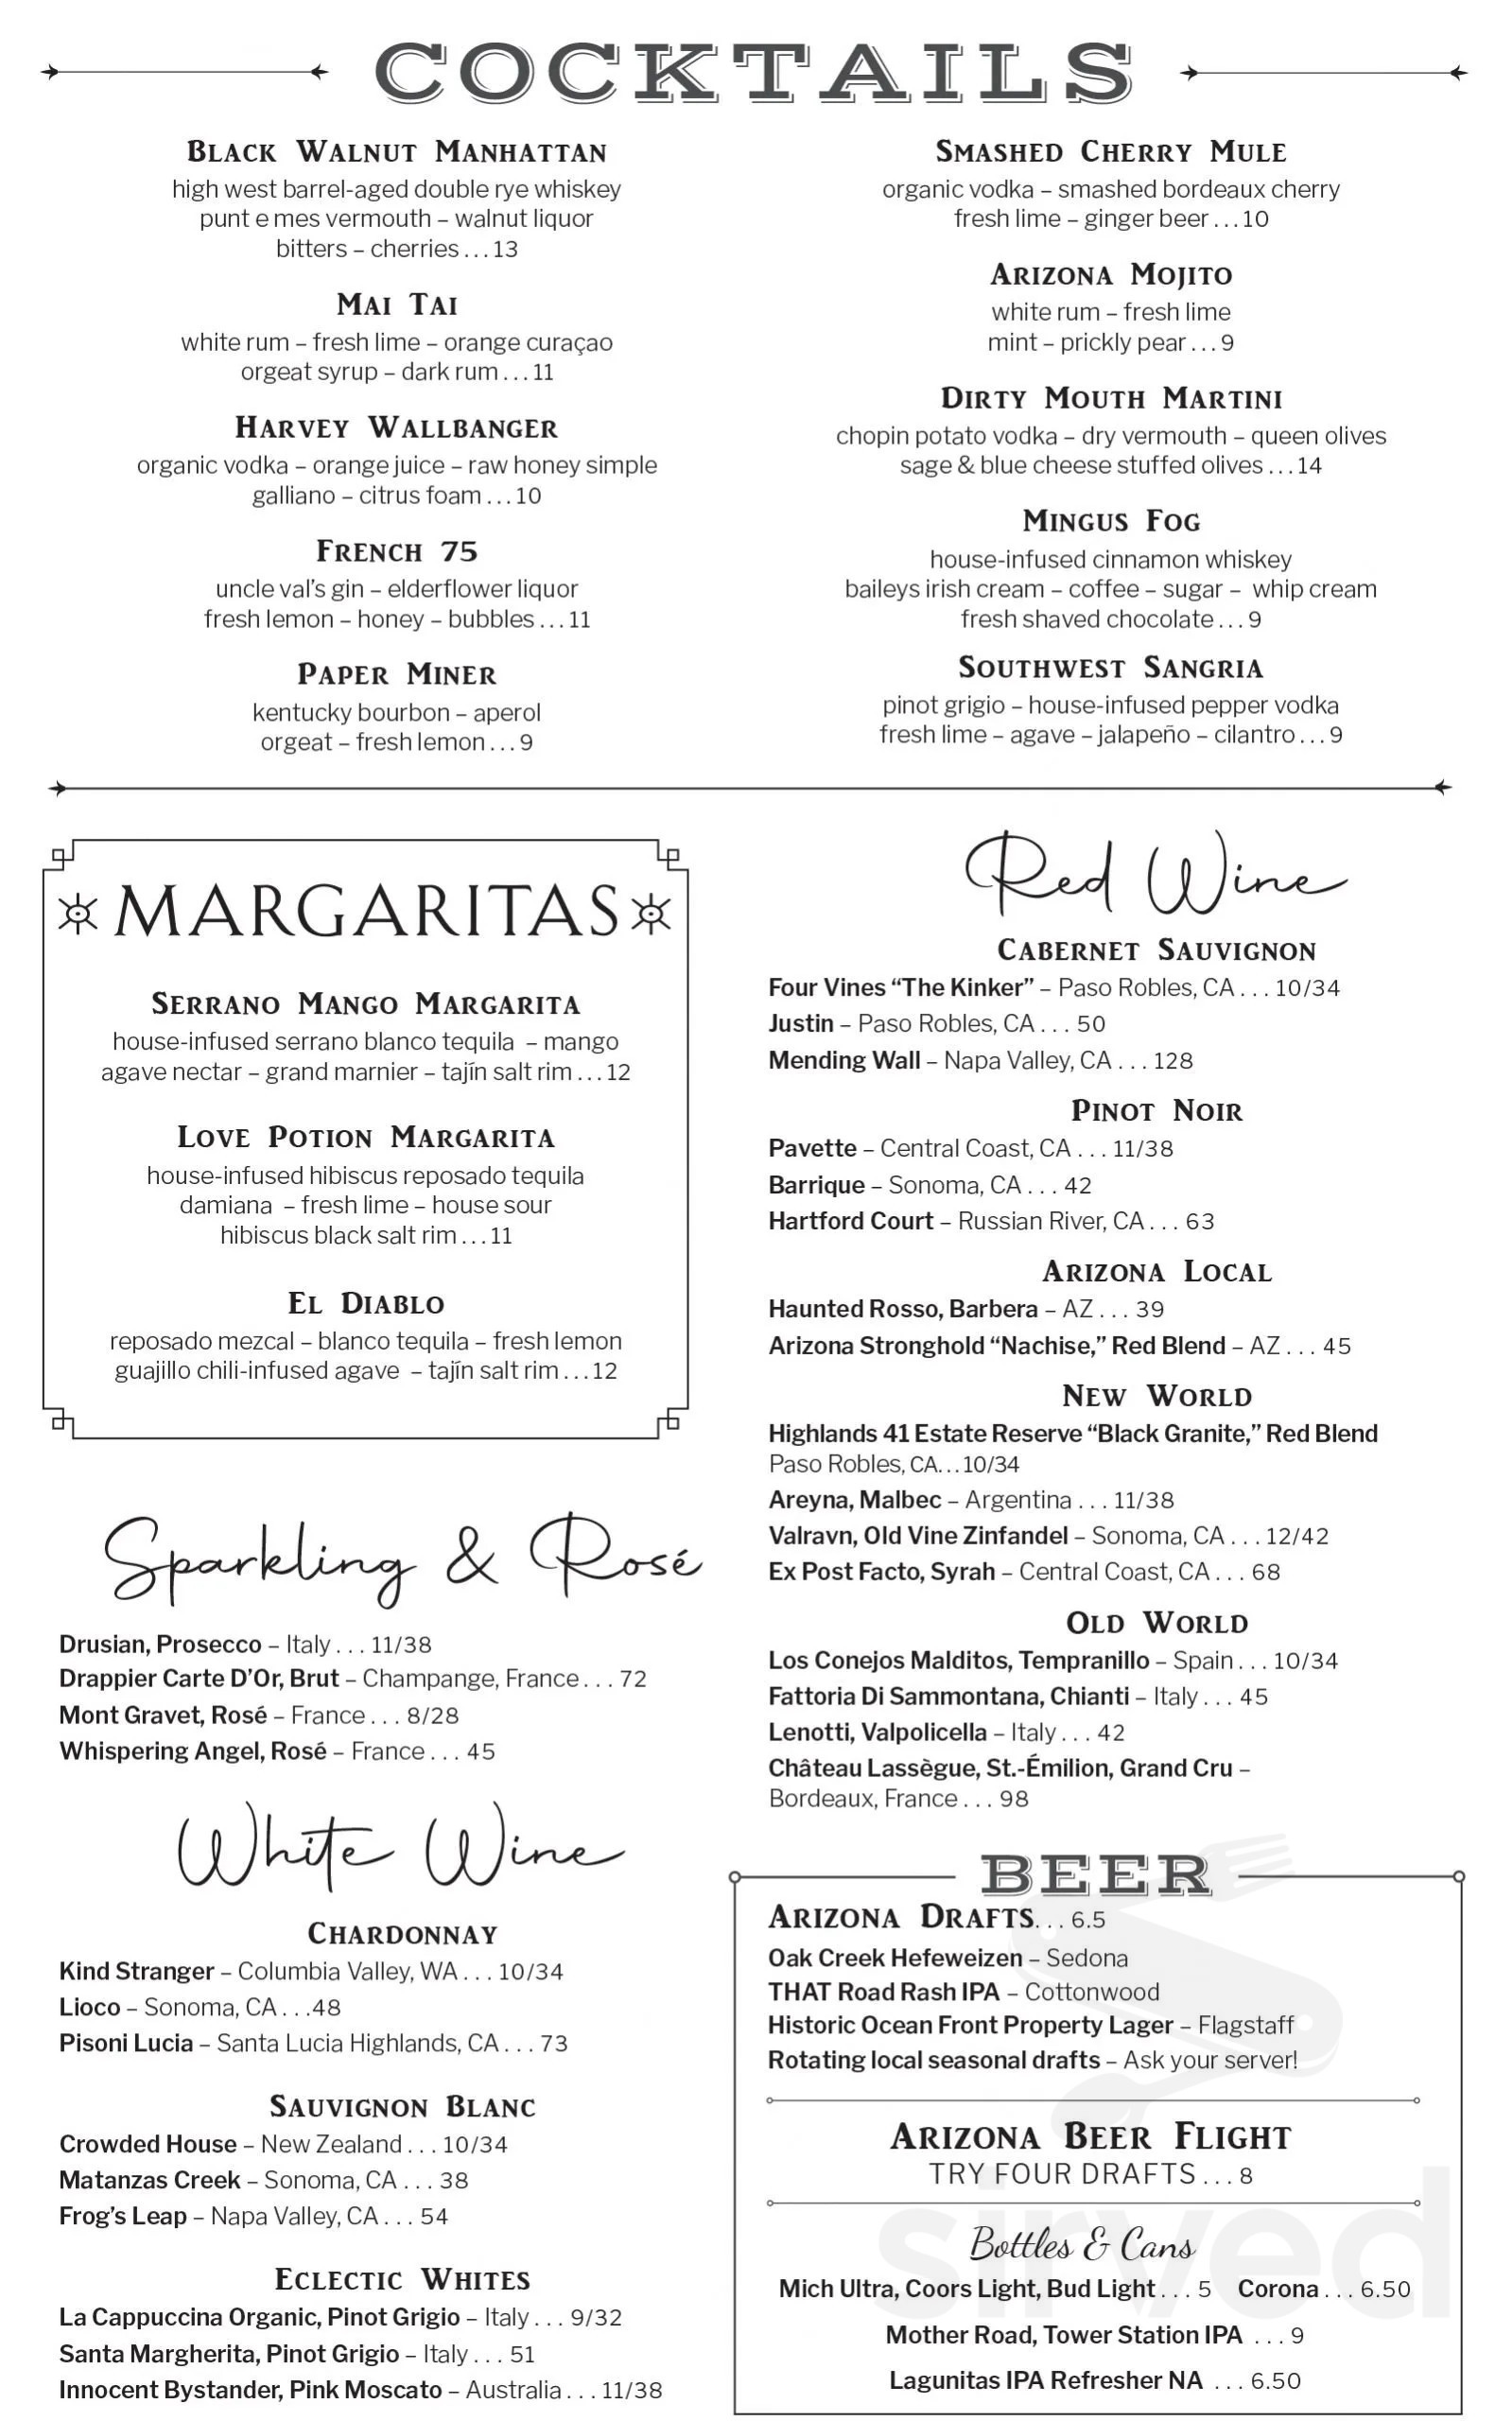 COCKTAILS
BLACK WALNUT MANHATTAN
high west barrel-aged double rye whiskey
punt e mes vermouth – walnut liquor
bitters – cherries . . . 13
MAI TAI
white rum – fresh lime – orange curaçao
orgeat syrup – dark rum . . . 11
HARVEY WALLBANGER
organic vodka – orange juice – raw honey simple
galliano – citrus foam . . . 10
FRENCH 75
uncle val's gin – elderflower liquor
fresh lemon – honey – bubbles . . . 11
PAPER MINER
kentucky bourbon – aperol
orgeat – fresh lemon . . . 9
SMASHED CHERRY MULE
organic vodka – smashed bordeaux cherry
fresh lime – ginger beer . . . 10
ARIZONA MOJITO
white rum – fresh lime
mint – prickly pear . . . 9
DIRTY MOUTH MARTINI
chopin potato vodka – dry vermouth – queen olives
sage & blue cheese stuffed olives . . . 14
MINGUS FOG
house-infused cinnamon whiskey
baileys irish cream – coffee – sugar – whip cream
fresh shaved chocolate . . . 9
SOUTHWEST SANGRIA
pinot grigio – house-infused pepper vodka
fresh lime – agave – jalapeño – cilantro . . . 9
MARGARITAS
SERRANO MANGO MARGARITA
house-infused serrano blanco tequila – mango
agave nectar – grand marnier – tajín salt rim . . . 12
LOVE POTION MARGARITA
house-infused hibiscus reposado tequila
damiana – fresh lime – house sour
hibiscus black salt rim . . . 11
EL DIABLO
reposado mezcal – blanco tequila – fresh lemon
guajillo chili-infused agave – tajín salt rim . . . 12
Sparkling & Rosé
Drusian, Prosecco – Italy . . . 11/38
Drappier Carte D'Or, Brut – Champange, France . . . 72
Mont Gravet, Rosé – France . . . 8/28
Whispering Angel, Rosé – France . . . 45
White Wine
CHARDONNAY
Kind Stranger – Columbia Valley, WA . . . 10/34
Lioco – Sonoma, CA . . .48
Pisoni Lucia – Santa Lucia Highlands, CA . . . 73
SAUVIGNON BLANC
Crowded House – New Zealand . . . 10/34
Matanzas Creek – Sonoma, CA . . . 38
Frog's Leap – Napa Valley, CA . . . 54
ECLECTIC WHITES
La Cappuccina Organic, Pinot Grigio – Italy . . . 9/32
Santa Margherita, Pinot Grigio – Italy . . . 51
Innocent Bystander, Pink Moscato – Australia . . . 11/38
Red Wine
CABERNET SAUVIGNON
Four Vines “The Kinker” – Paso Robles, CA . . . 10/34
Justin – Paso Robles, CA . . . 50
Mending Wall – Napa Valley, CA . . . 128
PINOT NOIR
Pavette – Central Coast, CA . . . 11/38
Barrique – Sonoma, CA . . . 42
Hartford Court – Russian River, CA . . . 63
ARIZONA LOCAL
Haunted Rosso, Barbera – AZ . . . 39
Arizona Stronghold “Nachise,” Red Blend – AZ . . . 45
NEW WORLD
Highlands 41 Estate Reserve “Black Granite,” Red Blend
Paso Robles, CA. . . 10/34
Areyna, Malbec – Argentina . . . 11/38
Valravn, Old Vine Zinfandel – Sonoma, CA . . . 12/42
Ex Post Facto, Syrah – Central Coast, CA . . . 68
OLD WORLD
Los Conejos Malditos, Tempranillo – Spain . . . 10/34
Fattoria Di Sammontana, Chianti – Italy . . . 45
Lenotti, Valpolicella – Italy . . . 42
Château Lassègue, St.-Émilion, Grand Cru –
Bordeaux, France . . . 98
BEER
ARIZONA DRAFTS. . . 6.5
Oak Creek Hefeweizen – Sedona
THAT Road Rash IPA – Cottonwood
Historic Ocean Front Property Lager – Flagstaff
Rotating local seasonal drafts – Ask your server!
ARIZONA BEER FLIGHT
TRY FOUR DRAFTS . . . 8
Bottles & Cans
Mich Ultra, Coors Light, Bud Light . . . 5 Corona . . . 6.50
Mother Road, Tower Station IPA . . . 9
Lagunitas IPA Refresher NA . . . 6.50
sirved